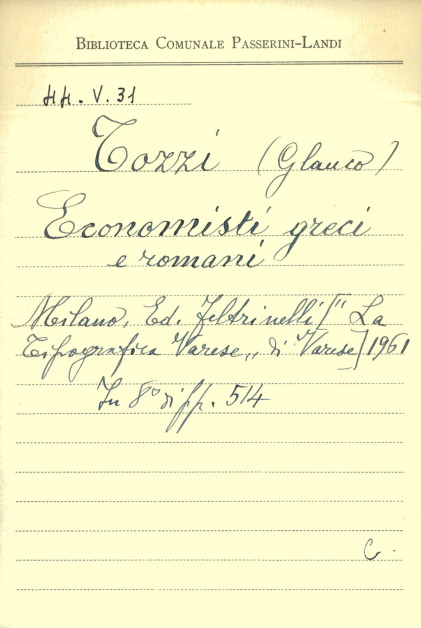 BIBLIOTECA COMUNALE PASSERINI-LANDI
HH. V. 31
Tozzi (Glauco)
Economisti greci
e romani
Milano, Ed. Feltrinelli ["La
Tipografica Varese„ di Varese] 1961
In 8° di pp. 514
C.